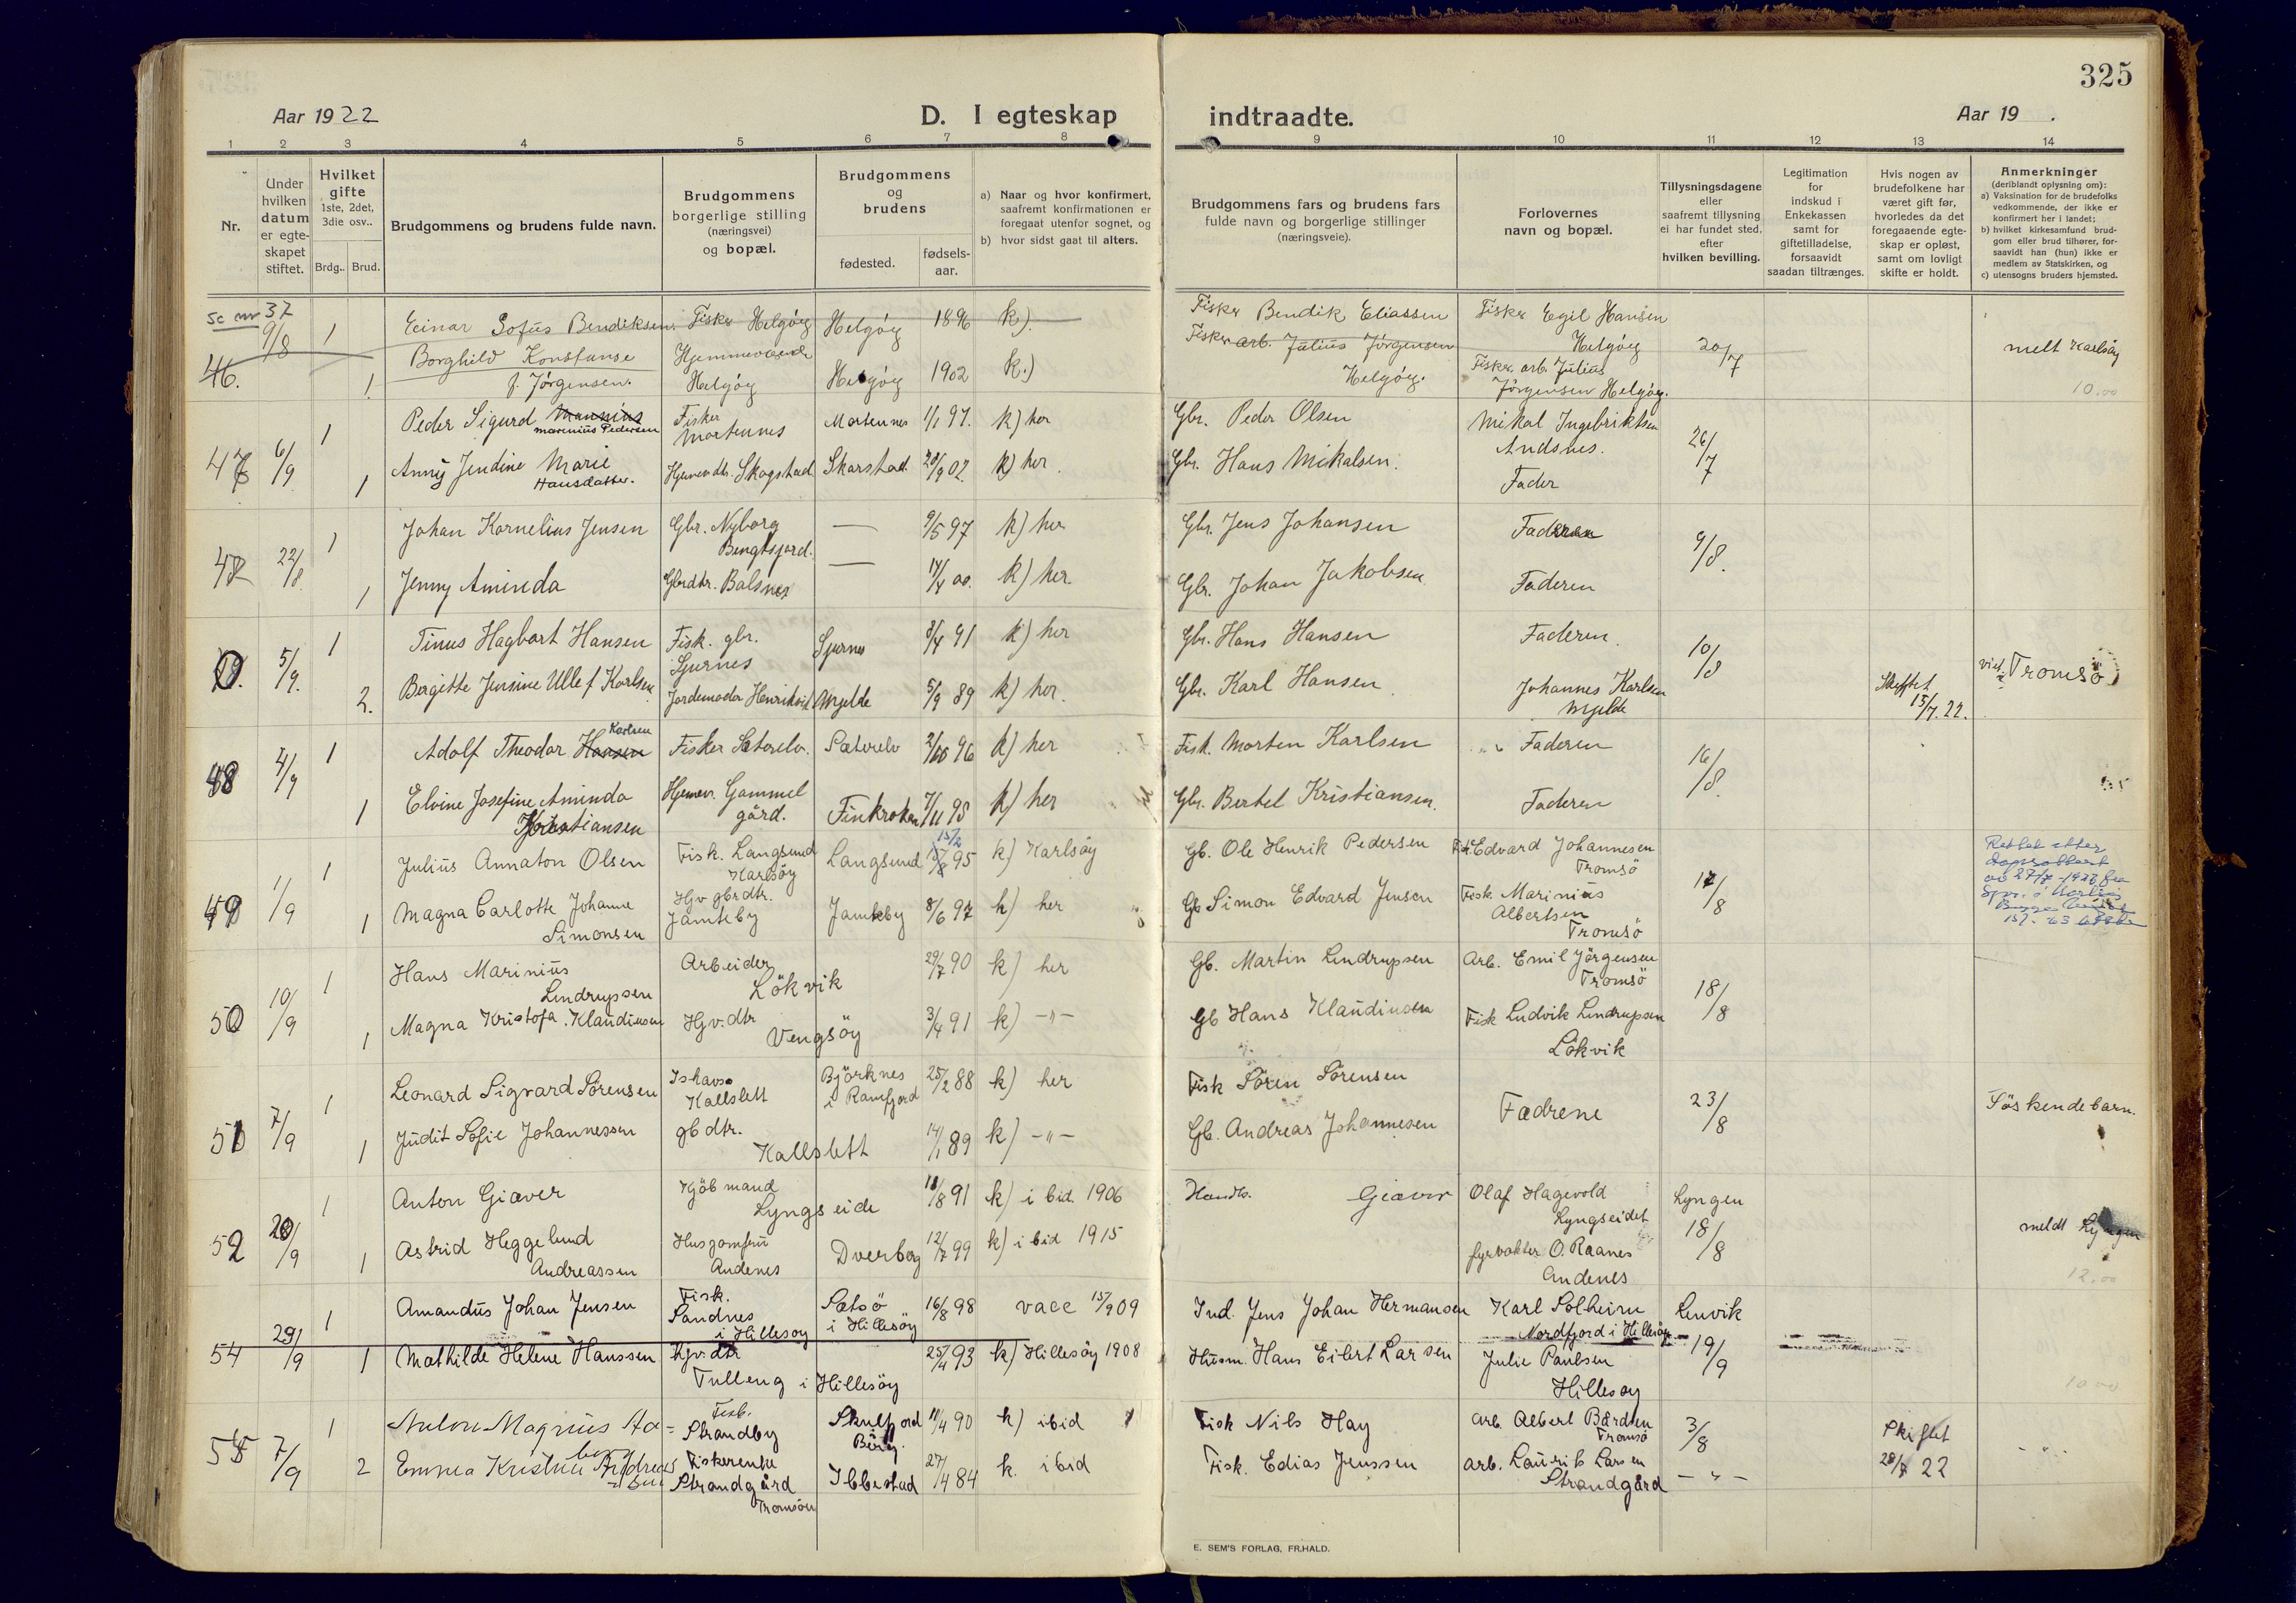 325
Aar 1922
D. I egteskap
indtraadte.
Aar 19 .
1 2 3 4 5 6 7 8
9 10 11 12 13 14
Nr.
Under
hvilken
datum
er egte-
skapet
stiftet.
Hvilket
gifte
1ste, 2det,
3die osv..
Brdg.. Brud.
Brudgommens og brudens fulde navn.
Brudgommens
borgerlige stilling
(næringsvei)
og bopæl.
Brudgommens
og
brudens
fødested.
fødsels-
aar.
a) Naar og hvor konfirmert,
saafremt konfirmationen er
foregaat utenfor sognet, og
b) hvor sidst gaat til alters.
Brudgommens fars og brudens fars
fulde navn og borgerlige stillinger
(næringsveie).
Forlovernes
navn og bopæl.
Tillysningsdagene
eller
saafremt tillysning
ei har fundet sted,
efter
hvilken bevilling.
Legitimation
for
indskud i
Enkekassen
samt for
giftetilladelse,
forsaavidt
saadan tiltrænges.
Hvis nogen av
brudefolkene har
været gift før,
hvorledes da det
foregaaende egte-
skap er opløst,
samt om lovligt
skifte er holdt.
Anmerkninger
(deriblandt oplysning om):
a) Vaksination for de brudefolks
vedkommende, der ikke er
konfirmert her i landet;
b) hvilket kirkesamfund brud-
gom eller brud tilhører, for-
saavidt han (hun) ikke er
medlem av Statskirken, og
c) utensogns bruders hjemsted.
se nr 37
46. 9/8 1 Einar Sofus Bendiksen. Fisker Helgøy Helgøy 1896 k). Fisker Bendik Eliassen Fisker Egil Hansen
Helgøy 20/7
1. Borghild Konstanse Hjemmeværende Fisker arb. Julius Jørgensen Fisker arb. Julius melt Karlsøy
f. Jørgensen. Helgøy Helgøy 1902 k.) Helgøy. Jørgensen Helgøy. 10.00
47 6/9 1 Peder Sigurd Marinius Pedersen Fisker Mortennes Mortennes 1/1 97. k) her Gbr. Peder Olsen Mikal Ingebriktsen
Andsnes. 26/7
1 Anny Jendine Marie Hansdatter. Hjemmev dtr. Skogstad Skarstad 20/9 02. k) her. Gbr. Hans Mikalsen. Fader
48 22/8. 1 Johan Kornelius Jensen Gbr. Nyborg — 9/5 97 k) her Gbr. Jens Johansen Faderen 9/8.
Bengtsjord.
1 Jenny Aminda Gbrdtr. Balsnes — 14/4 00. k) her. Gbr. Johan Jakobsen. Faderen
5/9. 1 Tinus Hagbart Hansen Fisk. gbr. Sjurnes Sjurnes 3/4 91 k) her Gbr. Hans Hansen Faderen. 10/8
2. Bergitte Jensine Ulle f Karlsen Jordemoder Henrikvik Mjelde 5/9 89 k) her. Gbr. Karl Hansen. Johannes Karlsen Skiftet viet i Tromsö
Mjelde 15/7.22.
48 4/9 1 Adolf Theodor Hansen Karlsen Fisker Sæterelv. Sæterelv 2/10 96 k) her Fisk. Morten Karlsen Faderen 16/8.
1 Elvine Josefine Aminda Hjemmev. Gammel Finkroken 7/11 95 k) her Gbr. Bertel Kristiansen. Faderen
Kristiansen gård.
49 1/9 1 Julius Annaton Olsen Fisk. Langsund Langsund 15/2 95 k) Karlsøy Gb. Ole Henrik Pedersen Fisk. Edvard Johannesen
Karlsøy Tromsö 17/8
1 Magna Carlotte Johanne Hjv gbrdtr. Jamteby 8/6 97 k) her Gb Simon Edvard Jensen Fisk. Marinius
Simonsen Jamteby Albertsen
Tromsö
50 10/9 1 Hans Marinius Arbeider 29/7 90 k) her Gb. Martin Lendrupsen Arb. Emil Jørgensen
Lendrupsen Lökvik Tromsö 18/8
1 Magna Kristofa. Klaudiusen Hjv. dtr 3/4 91 k) –"– Gb Hans Klaudiusen Fisk Ludvik Lendrupsen
Vengsöy Lökvik
51 7/9 1 Leonard Sigvard Sörensen Ishavs. Björknes 25/2 88 k) her Fisk Sören Sörensen
Kallslett i Ramfjord Fædrene 23/8 Söskendebarn.
1 Judit Sofie Johannessen gb dtr. 14/1 89 k) –"– Gb. Andreas Johannesen
Kallslett
52 20/9 1 Anton Giæver Kjöbmand 18/8 91 k) i bid. 1906 Handls. Giæver Olaf Hagevold Lyngen
Lyngseide Lyngseidet 18/8 meldt Lyngen
1 Astrid Heggelund Husjomfru Dverberg 12/7 99 k) i bid 1915 fyrvokter O. Raanes
Andreassen Andenes Andenes 12.00
54 29/9 1 Amandus Johan Jensen Fisk. Sandnes Sætsö 16/8 98 vacc 15/9 09 Ind. Jens Johan Hermansen Karl Solheim Lenvik
i Hillesøy i Hillesöy Nordfjord i Hillesøy 19/9
1 Mathilde Helene Hanssen hjv. dtr 25/4 93 k) Hillesöy 1908 Husm. Hans Eilert Larsen Julie Paulsen
Tulleng i Hillesöy Hillesøy 10.00
55 7/9 1 Anton Magnus Ha- Fisk. Strandby Skulfjord 11/4 90 k) ibid Fisk Nils Hay arb. Albert Bårdsen 3/8 Skiftet
Tromsö
2 Emma Kristine Andreas Fiskerenke Ibbestad 27/4 84 k. ibid Fisk. Edias Jenssen arb. Laurits Larsen –"– 22
Strandgård Strandgård
Tromsön
E. SEM'S FORLAG, FR.HALD.